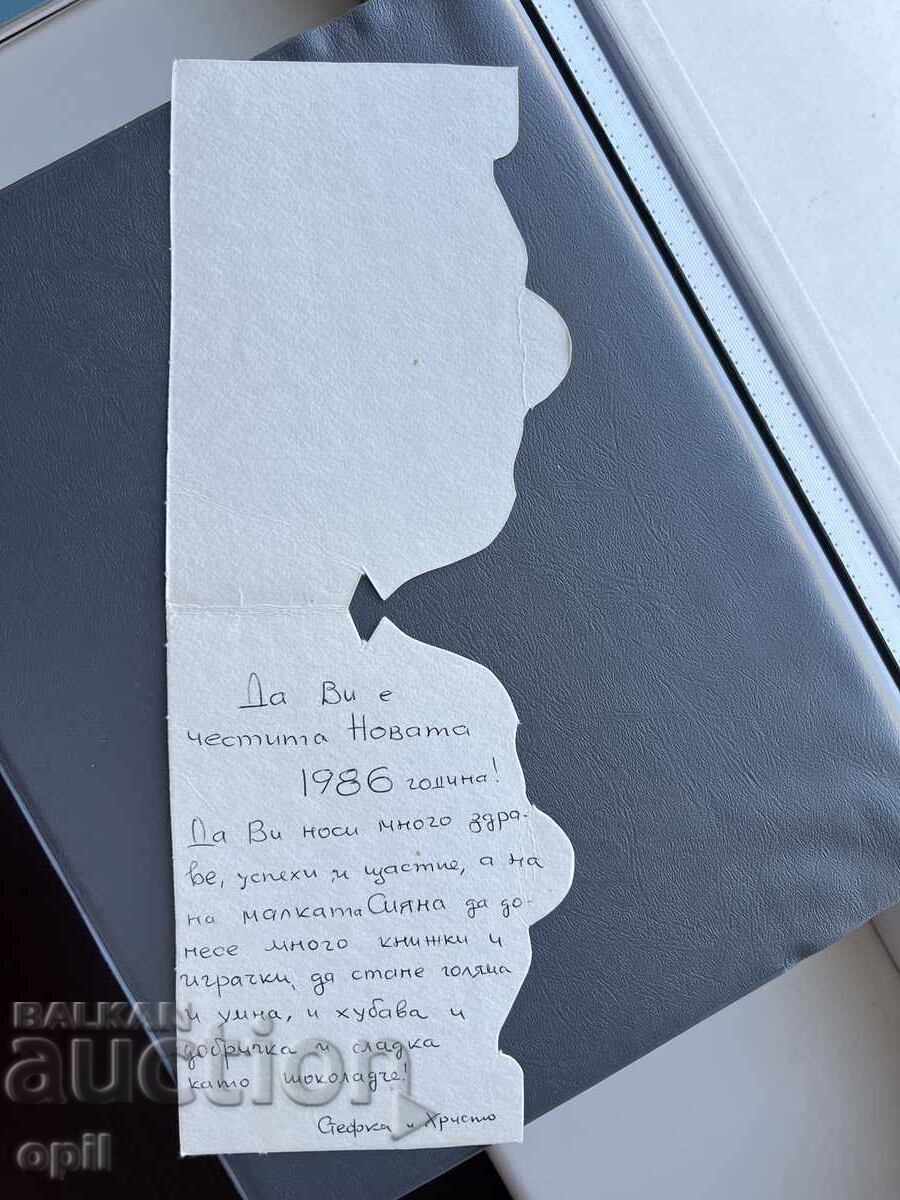 Да Ви е
честита Новата
1986 година!
Да Ви носи много здра-
ве, успехи и щастие, а на
на малката Сияна да до-
несе много книжки и
играчки, да стане голяма
и умна, и хубава и
добричка и сладка
като шоколадче!
Стефка и Христо
BALKAN
auction
opil